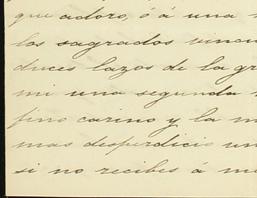 que adoro, ó á una
los sagrados vincu
duces lazos de la gr
mi una segunda
fino carino y la m
mas desperdicio un
si no recibes á me